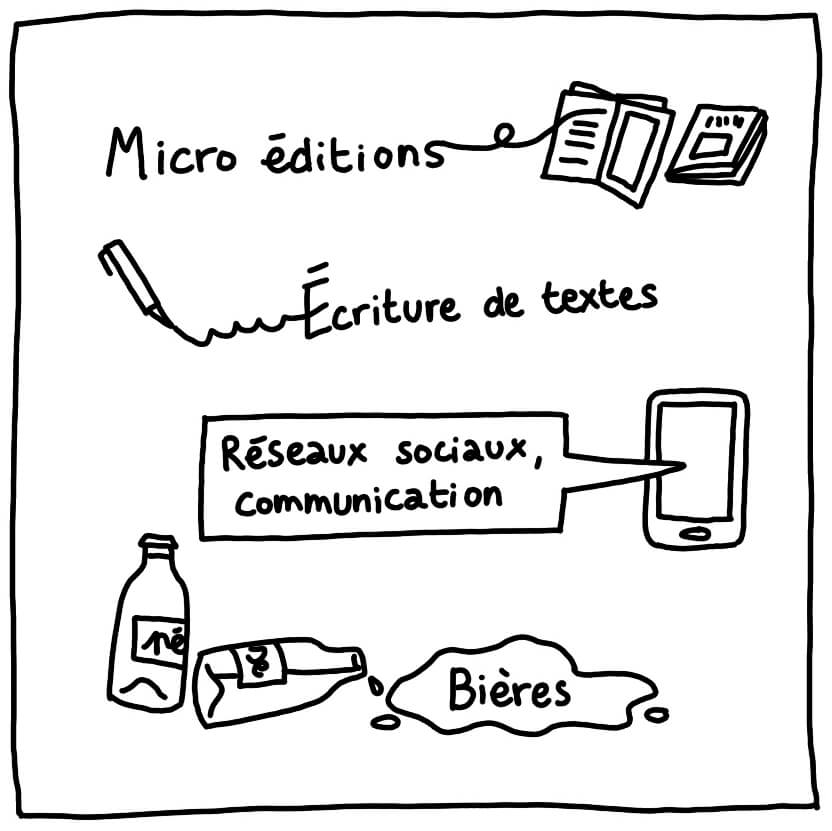 Micro éditions
Écriture de textes
Réseaux sociaux,
communication
né
Bières